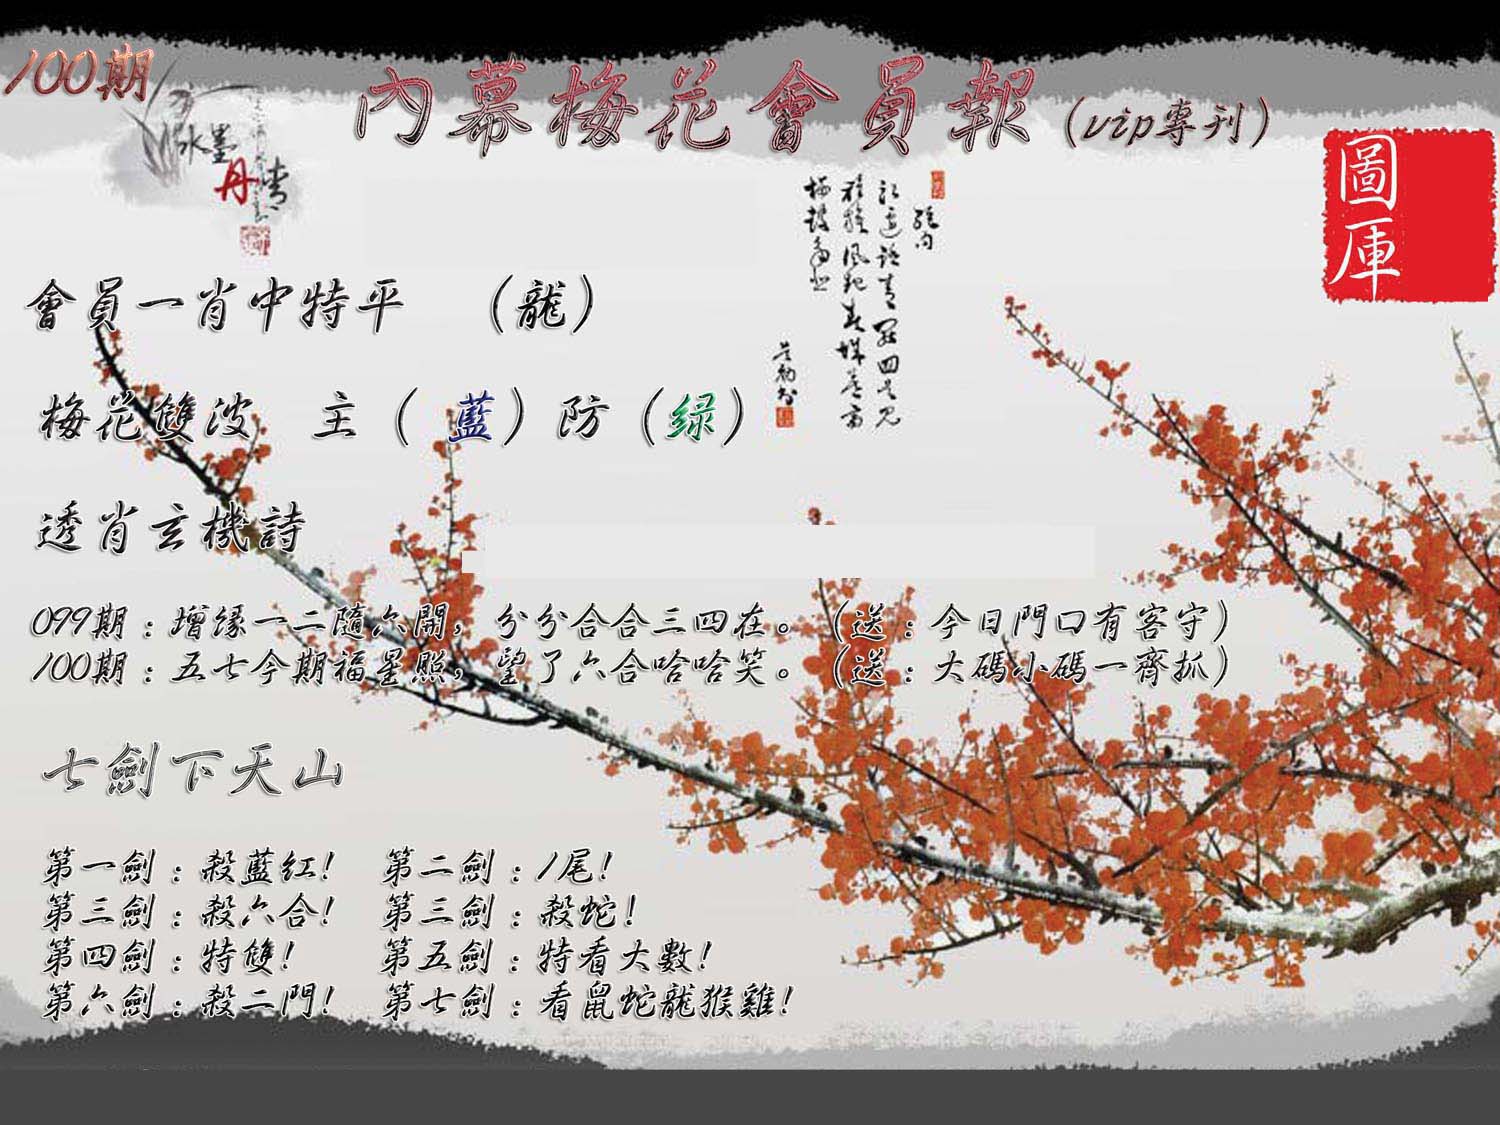 100期
水墨丹青
內幕梅花會員報(vip專刊)
圖庫
會員一肖中特平 (龍)
梅花雙波 主(藍)防(绿)
透肖玄機詩
099期:增缘一二隨六開,分分合合三四在。(送:今日門口有客守)
100期:五七今期福星照,望了六合哈哈笑。(送:大碼小碼一齊抓)
七劍下天山
第一劍:殺藍红! 第二劍:1尾!
第三劍:殺六合! 第三劍:殺蛇!
第四劍:特雙! 第五劍:特看大數!
第六劍:殺二門! 第七劍:看鼠蛇龍猴雞!